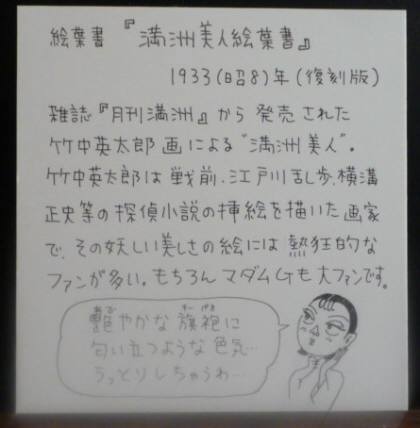 絵葉書 『満洲美人絵葉書』
1933(昭8)年(復刻版)
雑誌『月刊満洲』から発売された
竹中英太郎画による“満洲美人”。
竹中英太郎は戦前、江戸川乱歩、横溝
正史等の探偵小説の挿絵を描いた画家
で、その妖しい美しさの絵には熱狂的な
ファンが多い。もちろんマダムGも大ファンです。
艶やかな旗袍に
匂い立つような色気…
うっとりしちゃうわ…